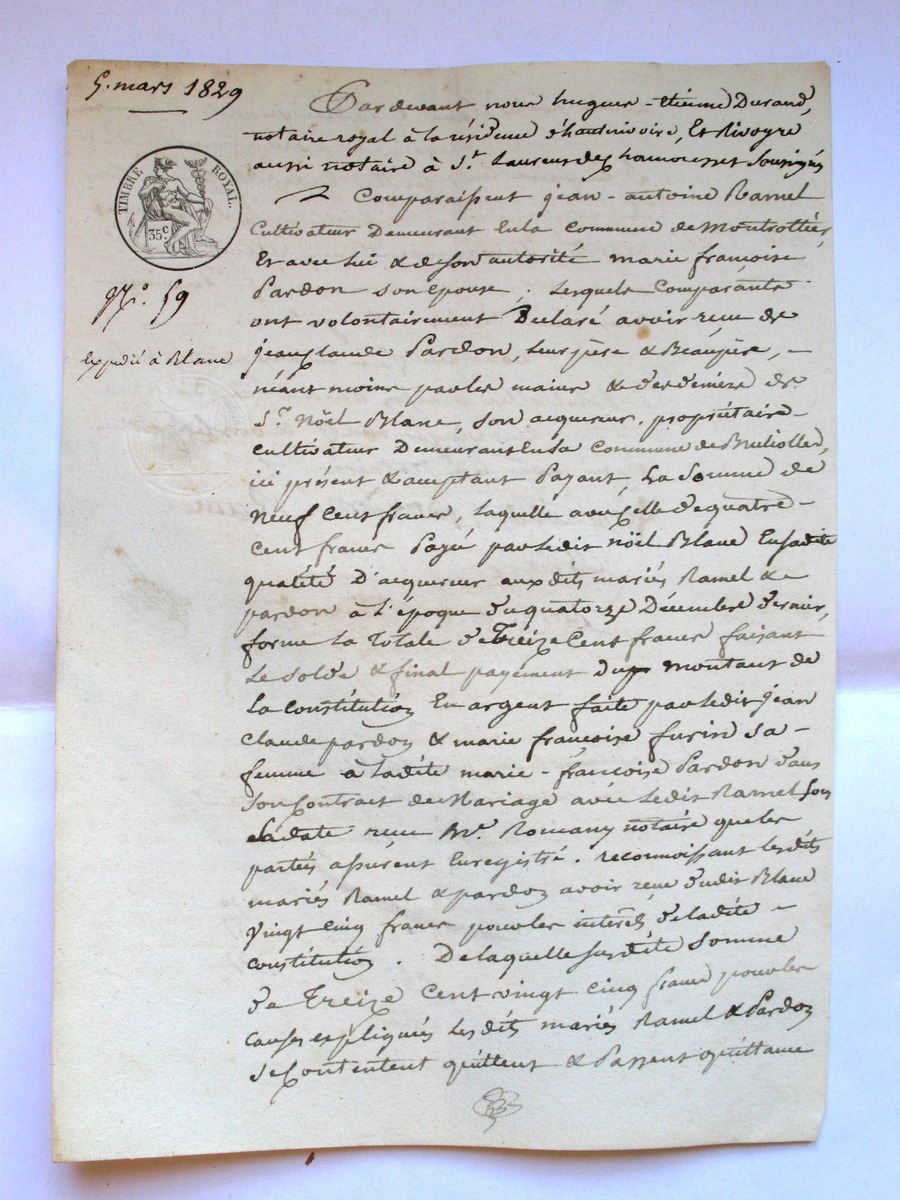 5. mars 1829
TIMBRE ROYAL.
35 c.
N.º 59
Expedié à Blanc
Pardevant nous hugues-étienne Durand,
notaire royal à la résidence d'hauterivoire, Et Rivoyre
aussi notaire à S.t Laurent de Chamousset Soussignés
Comparaissent jean-antoine Ramel
Cultivateur Demeurant En la commune de Montrottier
Et avec lui & de son autorité marie françoise
Pardon son epouse. Lesquels Comparants
ont volontairement Déclaré avoir reçu de
jean Claude Pardon, leur père & Beaupère, -
néant moins par les mains & des deniers de
S.r Nöel Blanc, son acquereur, propriétaire
cultivateur Demeurant En la Commune de Brullolles,
ici présent & acceptant Payant, La Somme de
neuf Cent francs, laquelle avec celle de quatre -
cent francs Payée par ledit nöel Blanc En sadite
qualité D'acquereur aux dits mariés Ramel &
pardon à l'époque du quatorze Décembre dernier,
forme la Totale de Treize Cent francs faisant
Le solde & final payement du montant de
la constitution En argent faite par ledit jean
Claude pardon & marie françoise furin sa -
femme à ladite marie-françoise Pardon dans
son Contrat de Mariage avec ledit Ramel sous
sa date reçu M.e Romany notaire que les
parties assurent Enregistré. reconnoissant lesdits
mariés Ramel & pardon avoir reçu dudit Blanc
Vingt cinq francs pour les intérêts de ladite -
constitution. De laquelle susdite somme
de Treize Cent vingt cinq francs pour les
causes expliquées Lesdits mariés Ramel & Pardon
se Contentent quittent & Passent quittance